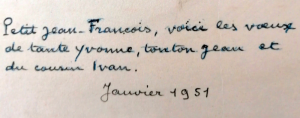 Petit Jean-François, voici les vœux
de tante Yvonne, tonton Jean et
du cousin Ivan.
Janvier 1951